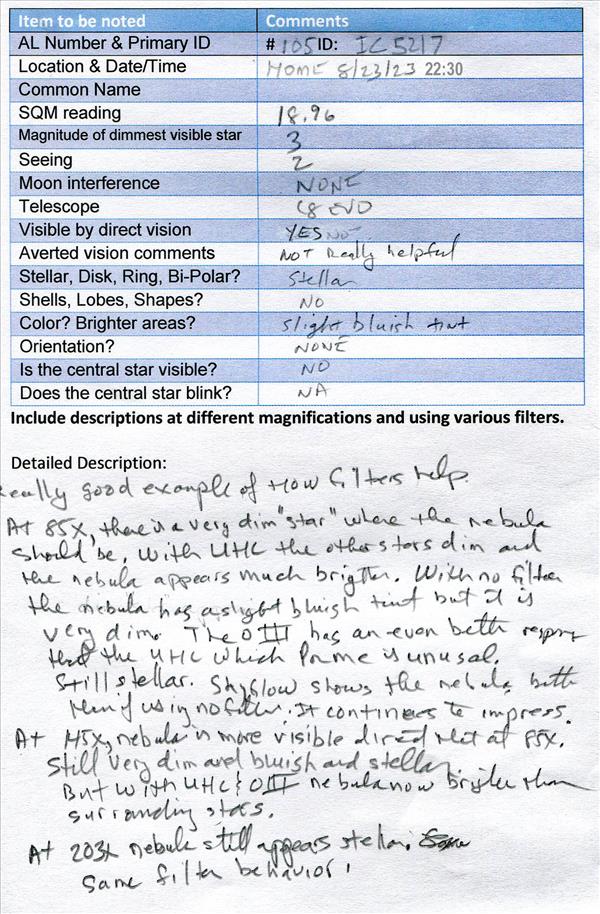 Item to be noted Comments
AL Number & Primary ID # 105 ID: IC 5217
Location & Date/Time HOME 8/23/23 22:30
Common Name
SQM reading 18.96
Magnitude of dimmest visible star 3
Seeing 2
Moon interference NONE
Telescope C8 EVO
Visible by direct vision YES
Averted vision comments NOT Really helpful
Stellar, Disk, Ring, Bi-Polar? Stellar
Shells, Lobes, Shapes? NO
Color? Brighter areas? slight bluish tint
Orientation? NONE
Is the central star visible? NO
Does the central star blink? NA
Include descriptions at different magnifications and using various filters.
Detailed Description:
Really good example of How Filters help.
At 85X, there is a very dim "star" where the nebula
should be, With UHC the other stars dim and
the nebula appears much brighter. With no filter
the nebula has a slight bluish tint but it is
very dim. The OIII has an even better
the UHC which for me is unusal.
Still stellar. Skyglow shows the nebula better
using no filter. It continues to impress.
At 145X, nebula is more visible direct at 85X.
Still very dim and bluish and stellar
But with UHC & OIII nebula now brighter than
surrounding stars.
At 203X nebula still appears stellar.
Same filter behavior.